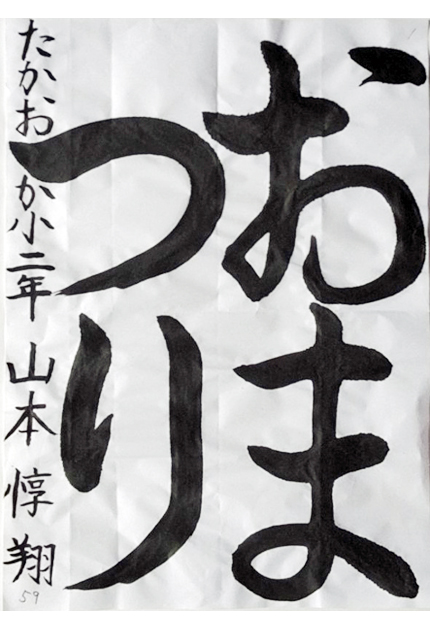 おま
つり
たかおか小二年 山本惇翔
59